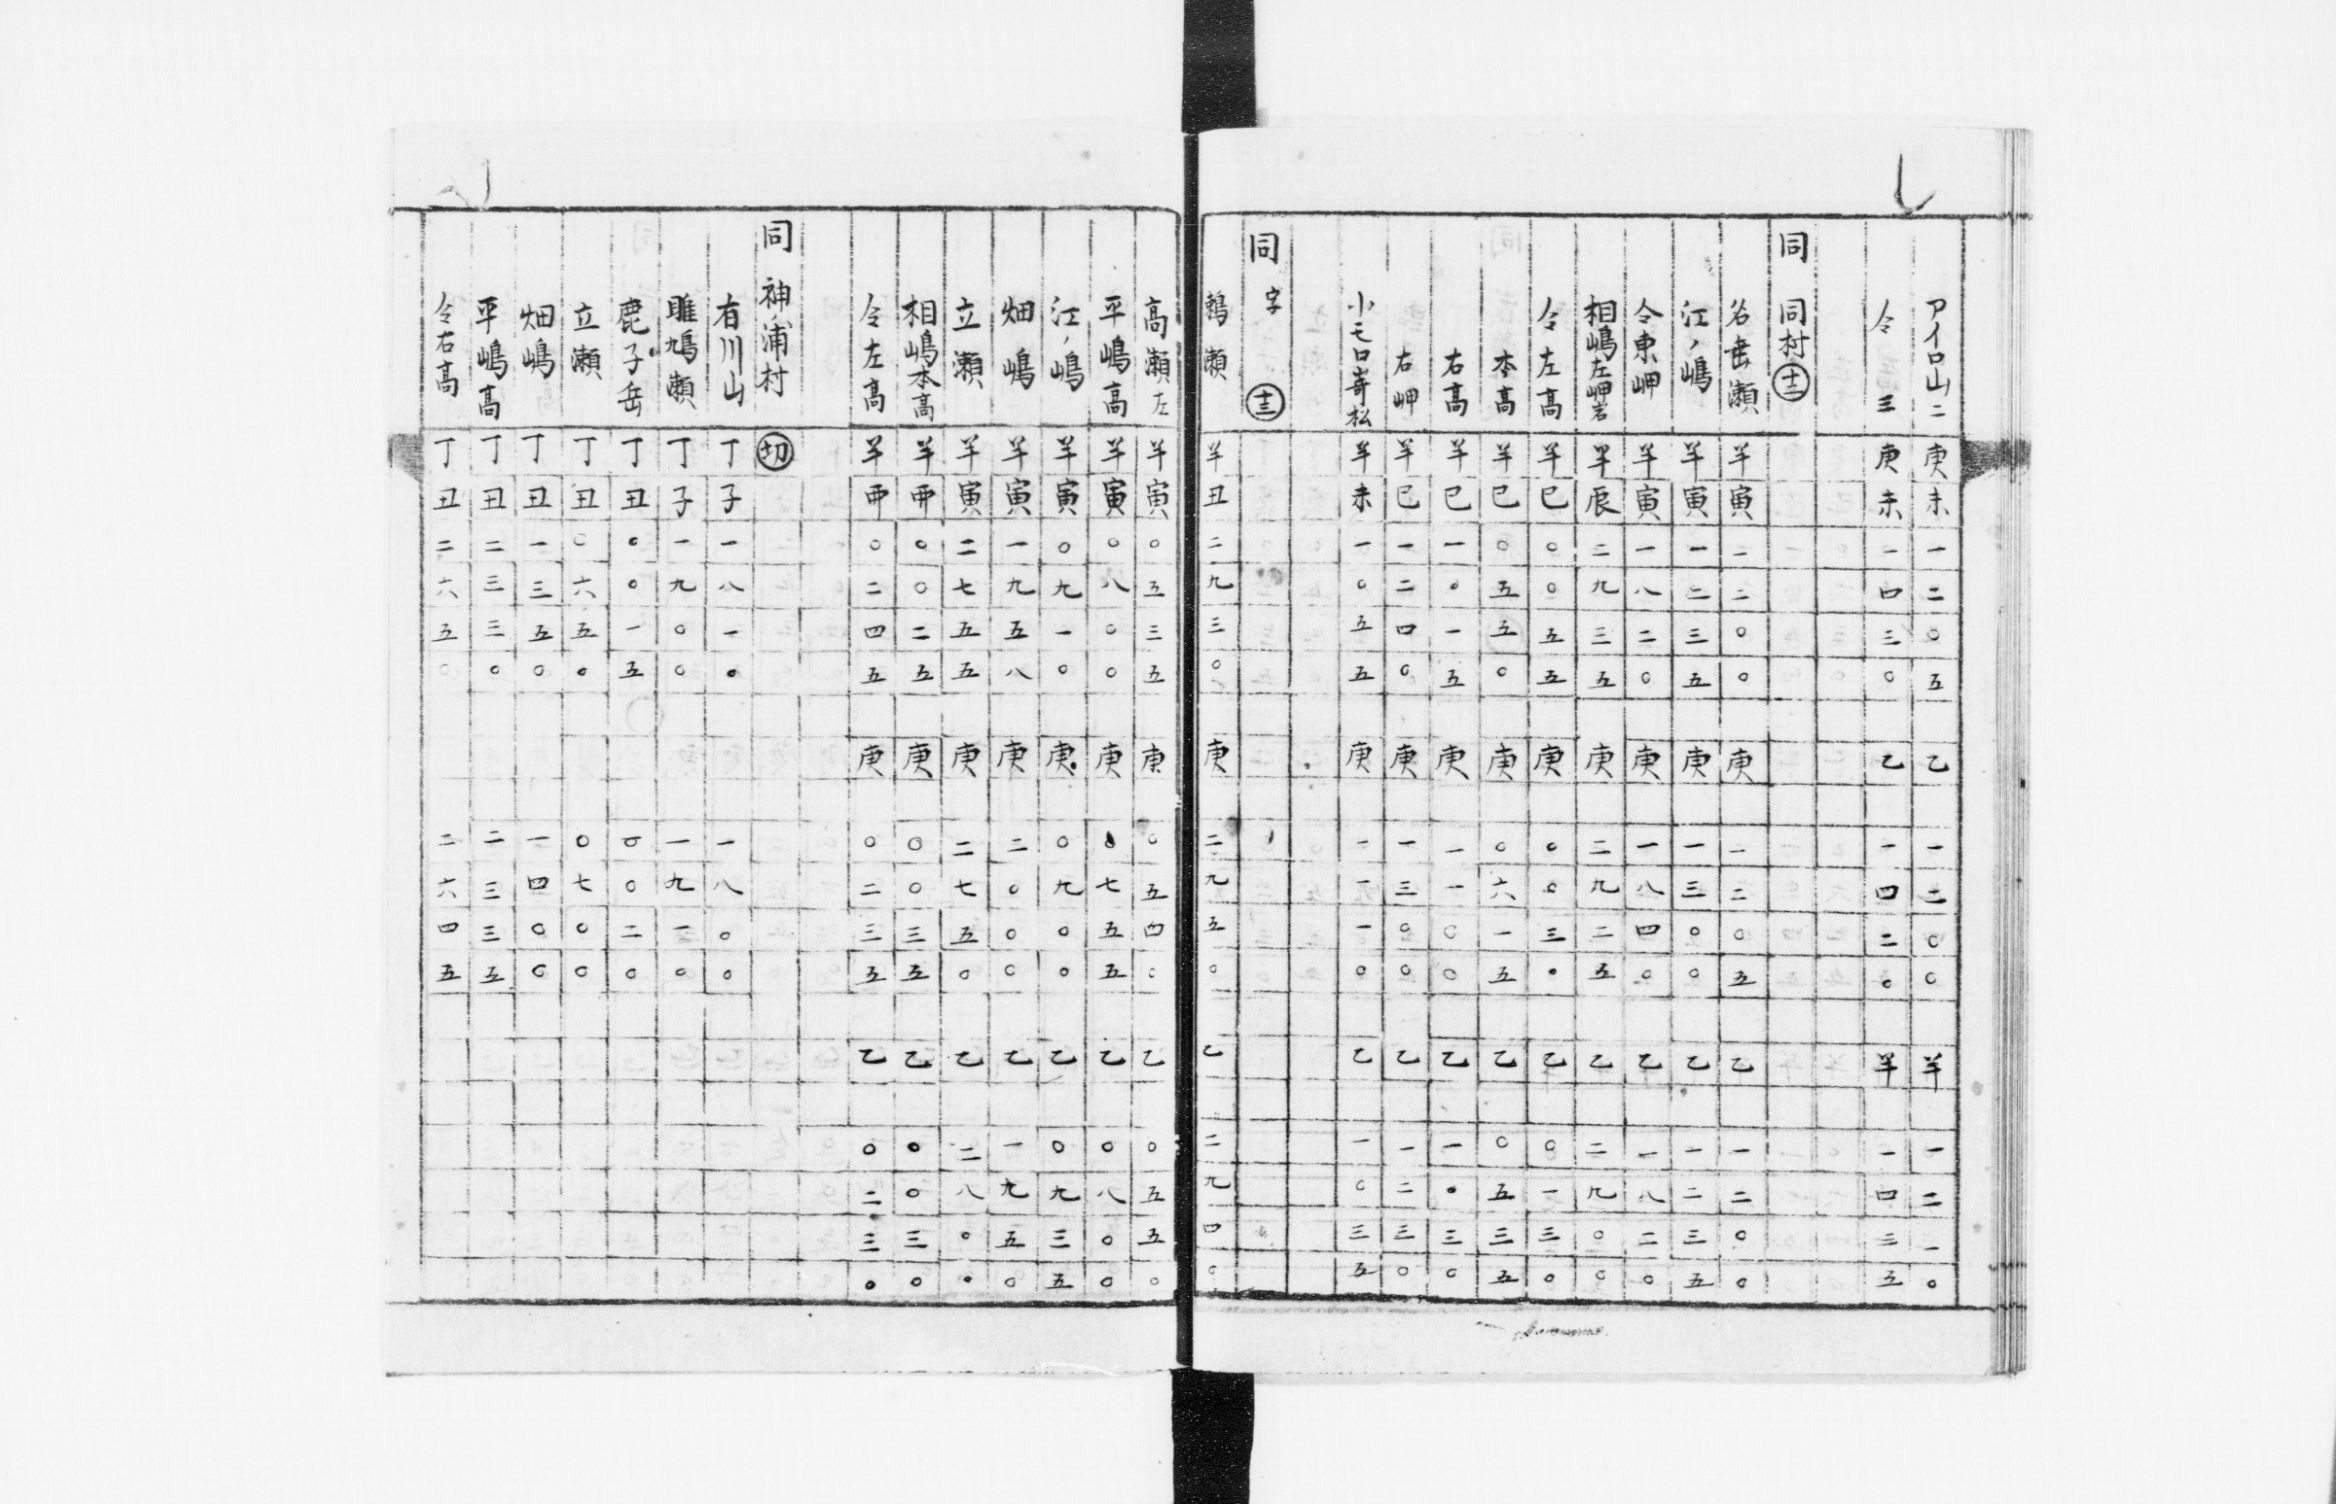 アイロ山二 庚未一二〇五 乙一二〇〇 羊一二一〇
仝三 庚未一四三〇 乙一四二〇 羊一四三五
同 同村 十二
名岳瀬 羊寅一二〇〇 庚一二〇五 乙一二〇〇
江ノ嶋 羊寅一二三五 庚一三〇〇 乙一二三五
仝東岬 羊寅一八二〇 庚一八四〇 乙一八二〇
相嶋左岬岩 羊辰二九三五 庚二九二五 乙二九〇〇
仝左高 羊巳〇〇五五 庚〇〇三〇 乙〇一三〇
本高 羊巳〇五五〇 庚〇六一五 乙〇五三五
右高 羊巳一〇一五 庚一一〇〇 乙一〇三〇
右岬 羊巳一二四〇 庚一三〇〇 乙一二三〇
小モロ嵜松 羊未一〇五五 庚一一一〇 乙一〇三五
同 字 十三
鵜瀬 羊丑二九三〇 庚二九五〇 乙二九四〇
高瀬左 羊寅〇五三五 庚〇五四〇 乙〇五五〇
平嶋高 羊寅〇八〇〇 庚〇七五五 乙〇八〇〇
江ノ嶋 羊寅〇九一〇 庚〇九〇〇 乙〇九三五
畑嶋 羊寅一九五八 庚二〇〇〇 乙一九五〇
立瀬 羊寅二七五五 庚二七五〇 乙二八〇〇
相嶋本高 羊 〇〇二五 庚〇〇三五 乙〇〇三〇
仝左高 羊 〇二四五 庚〇二三五 乙〇二三〇
同 神ノ浦村 切
有川山 丁子一八一〇 一八〇〇
雎鳩瀬 丁子一九〇〇 一九一〇
鹿子岳 丁丑〇〇一五 〇〇二〇
立瀬 丁丑〇六五〇 〇七〇〇
畑嶋 丁丑一三五〇 一四〇〇
平嶋高 丁丑二三三〇 二三三五
仝右高 丁丑二六五〇 二六四五